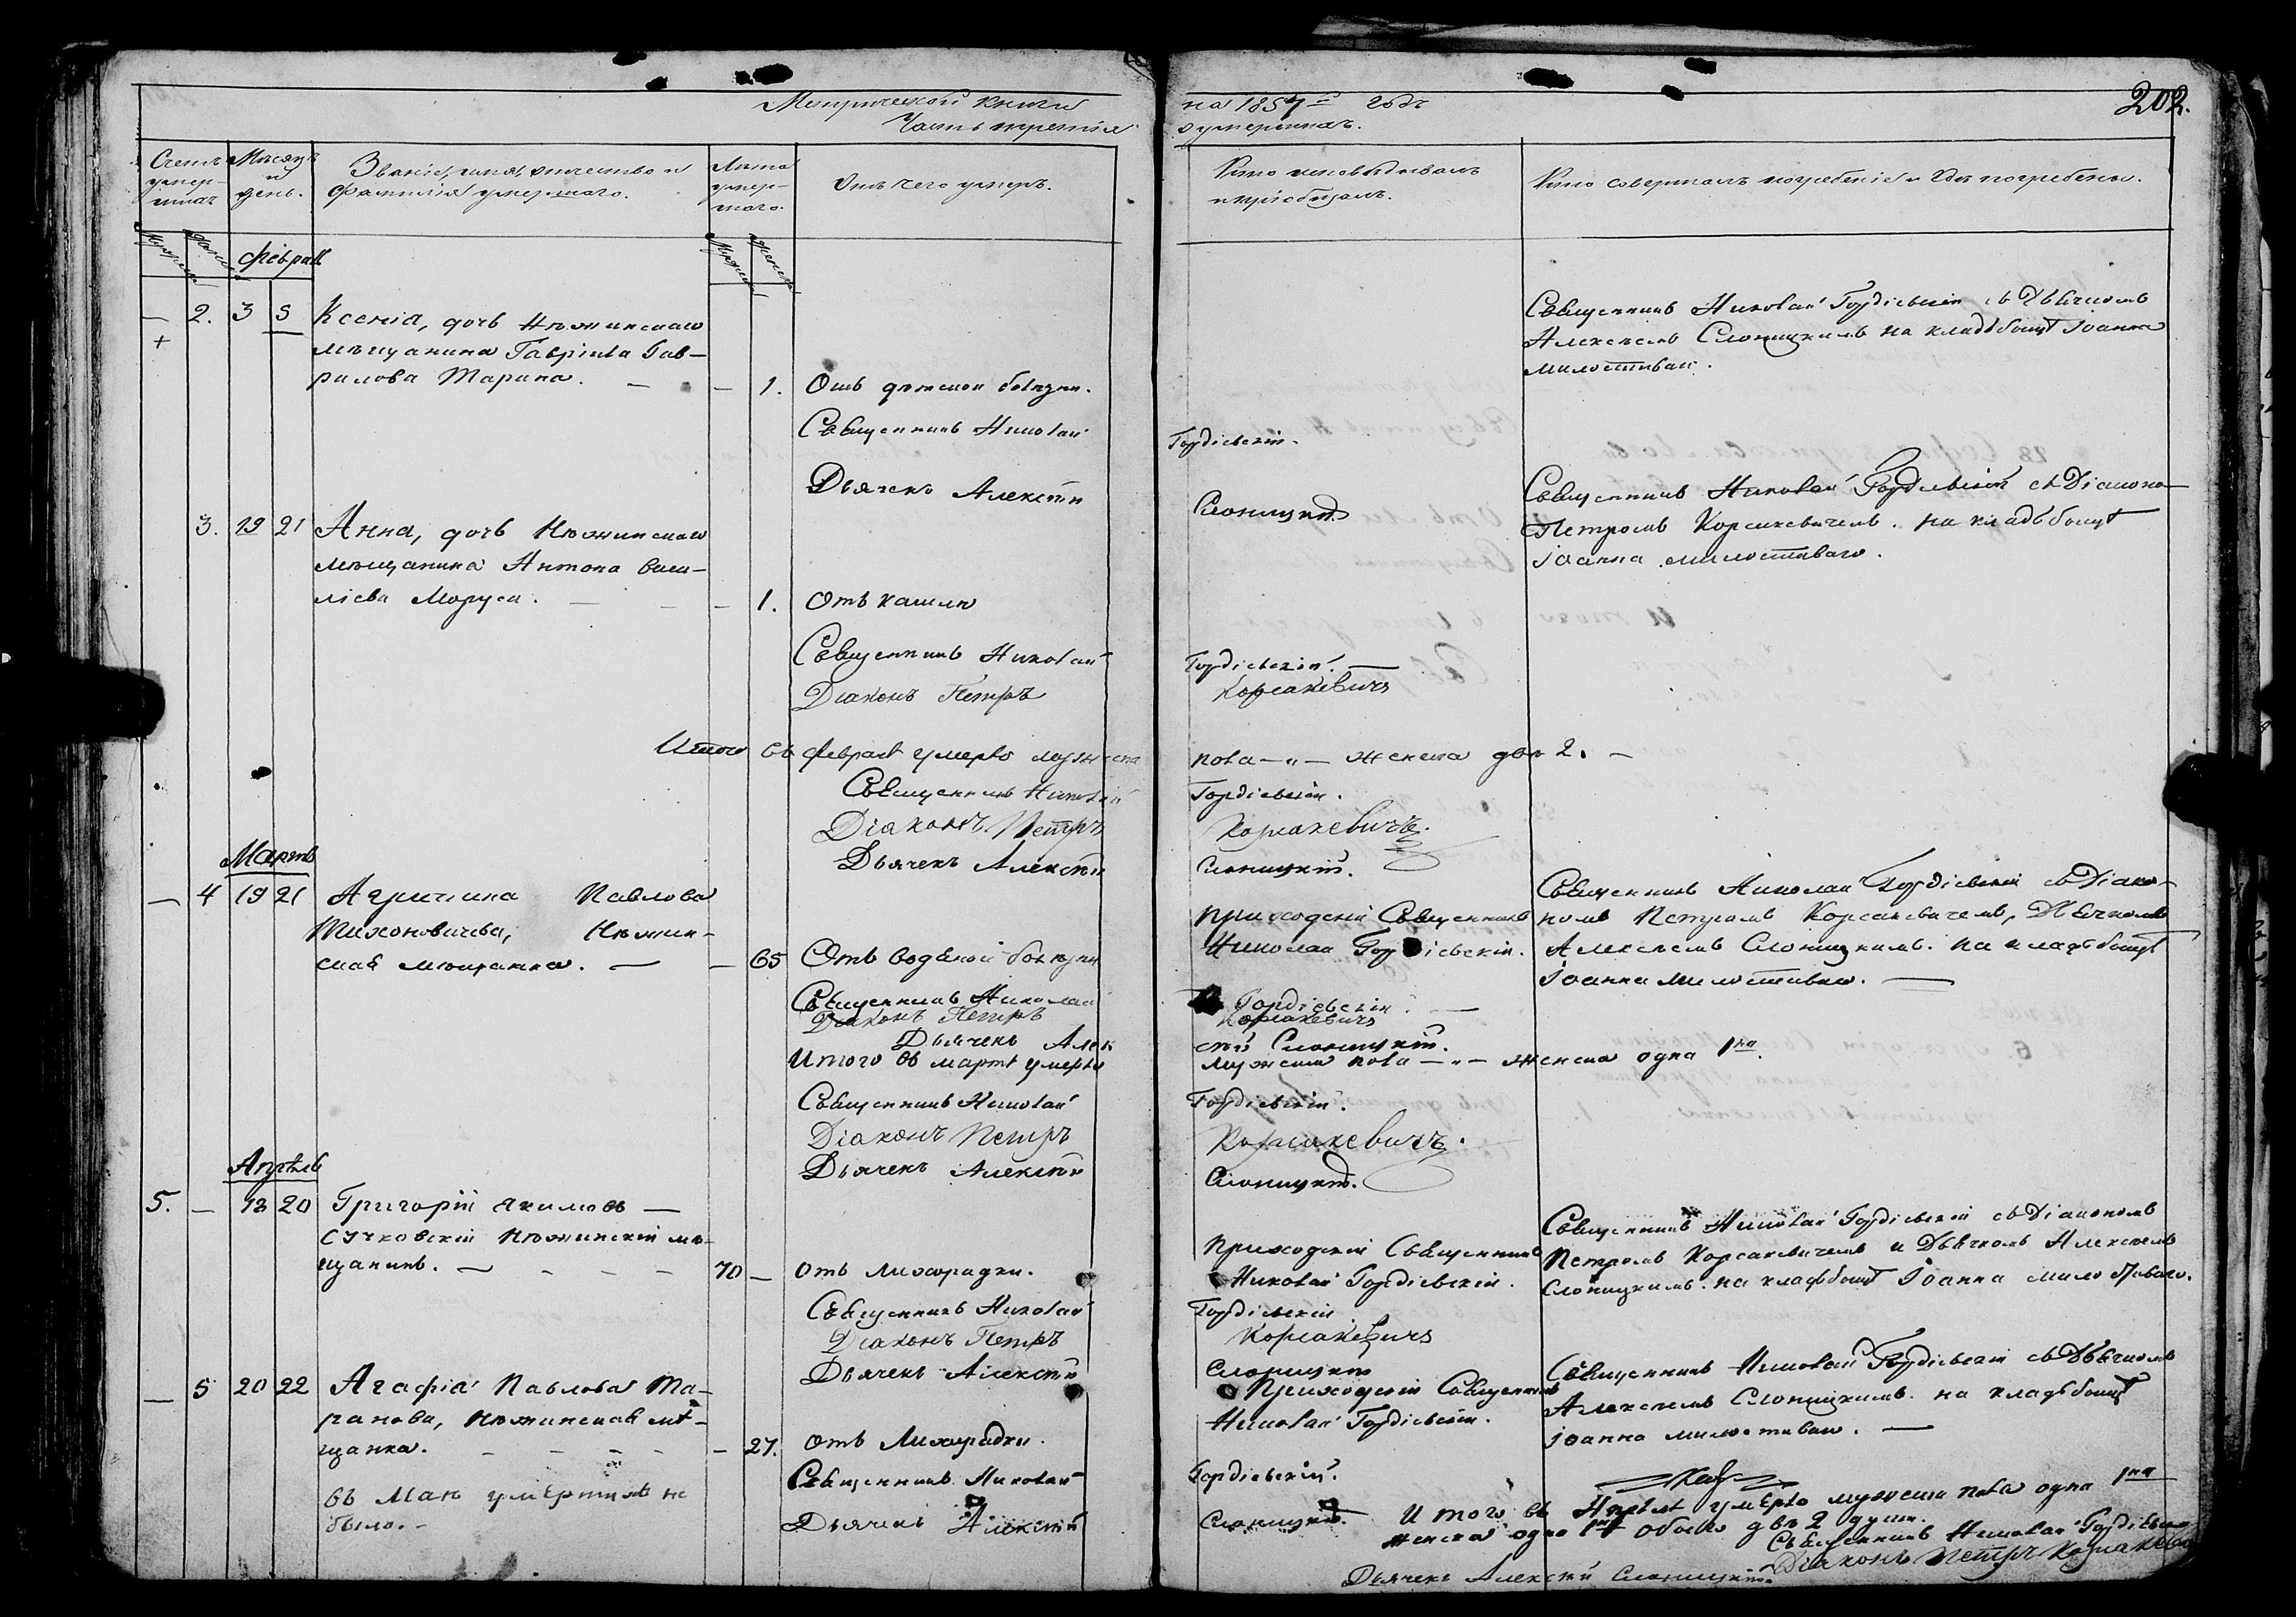 Метрической книги
Часть третія
на 1857 годъ
о умершихъ.
202.
Счетъ умер-шихъ
Мѣсяцъ и день.
Званіе, имя, отчество и фамилія умершаго.
Лѣта умер-шаго.
Отъ чего умеръ.
Кто исповѣдывалъ и пріобщалъ.
Кто совершалъ погребеніе и гдѣ погребены.
Феврал
— 2. 3 5 Ксенія, дочь Нѣжинскаго
мѣщанина Гавріила Гав-
рилова Тарана. — — 1. Отъ дѣтской болѣзни.
Священникъ Николай Гордіевскій.
Дьячекъ Алексѣй Слоницкій
Священникъ Николай Гордіевскій съ Дьячкомъ
Алексѣемъ Слоницкимъ на кладбищѣ Іоанна
милостиваго.
3. 19 21 Анна, дочь Нѣжинскаго
мѣщанина Антона Васи-
ліева Моруса. — — — 1. Отъ кашля
Священникъ Николай Гордіевскій.
Діаконъ Петръ Корсакевичъ
Священникъ Николай Гордіевскій съ Діакономъ
Петромъ Корсакевичемъ. на кладбищѣ
Іоанна милостиваго.
Итого въ февралѣ умерло мужеска пола — „ — женска двѣ 2. —
Священникъ Николай Гордіевскій.
Діаконъ Петръ Корсакевичъ.
Дьячекъ Алексѣй Слоницкій.
Мартъ
— 4 19 21 Агрипина Павлова
Тихоновичева, Нѣжин-
ская мѣщанка. — — 65 Отъ водяной болѣзни
Приходскій Священникъ
Николай Гордіевскій.
Священникъ Николай Гордіевскій съ Діако-
номъ Петромъ Корсакевичемъ, Дьячкомъ
Алексѣемъ Слоницкимъ. на кладбищѣ
Іоанна Милостиваго. —
Священникъ Николай Гордіевскій.
Діаконъ Петръ Корсакевичъ
Дьячекъ Алексѣй Слоницкій.
Итого въ мартѣ умерло мужеска пола — „ — женска одна 1на.
Священникъ Николай Гордіевскій.
Діаконъ Петръ Корсакевичъ.
Дьячекъ Алексѣй Слоницкій.
Апрѣль
5. — 18 20 Григорій Якимовъ —
Сучковскій Нѣжинскій мѣ-
щанинъ. — — — — 70 — Отъ лихорадки.
Приходскій Священникъ
Николай Гордіевскій.
Священникъ Николай Гордіевскій съ Діакономъ
Петромъ Корсакевичемъ и Дьячкомъ Алексѣемъ
Слоницкимъ. на кладбищѣ Іоанна милостиваго.
Священникъ Николай Гордіевскій
Діаконъ Петръ Корсакевичъ
Дьячекъ Алексѣй Слоницкій
— 5 20 22 Агафія Павлова Та-
ранова, Нѣжинская мѣ-
щанка. — — — — — 27. Отъ Лихорадки.
Приходскій Священникъ
Николай Гордіевскій.
Священникъ Николай Гордіевскій съ Дьячкомъ
Алексѣемъ Слоницкимъ. на кладбищѣ
Іоанна милостиваго. —
Священникъ Николай Гордіевскій.
Дьячекъ Алексѣй Слоницкій.
Итого въ Апрѣлѣ умерло мужеска пола одна 1на
женска одна 1на обоего двѣ 2 души.
Священникъ Николай Гордіевскій
Діаконъ Петръ Корсакевичъ
Дьячекъ Алексѣй Слоницкій.
Въ Маѣ умершихъ не
было. —